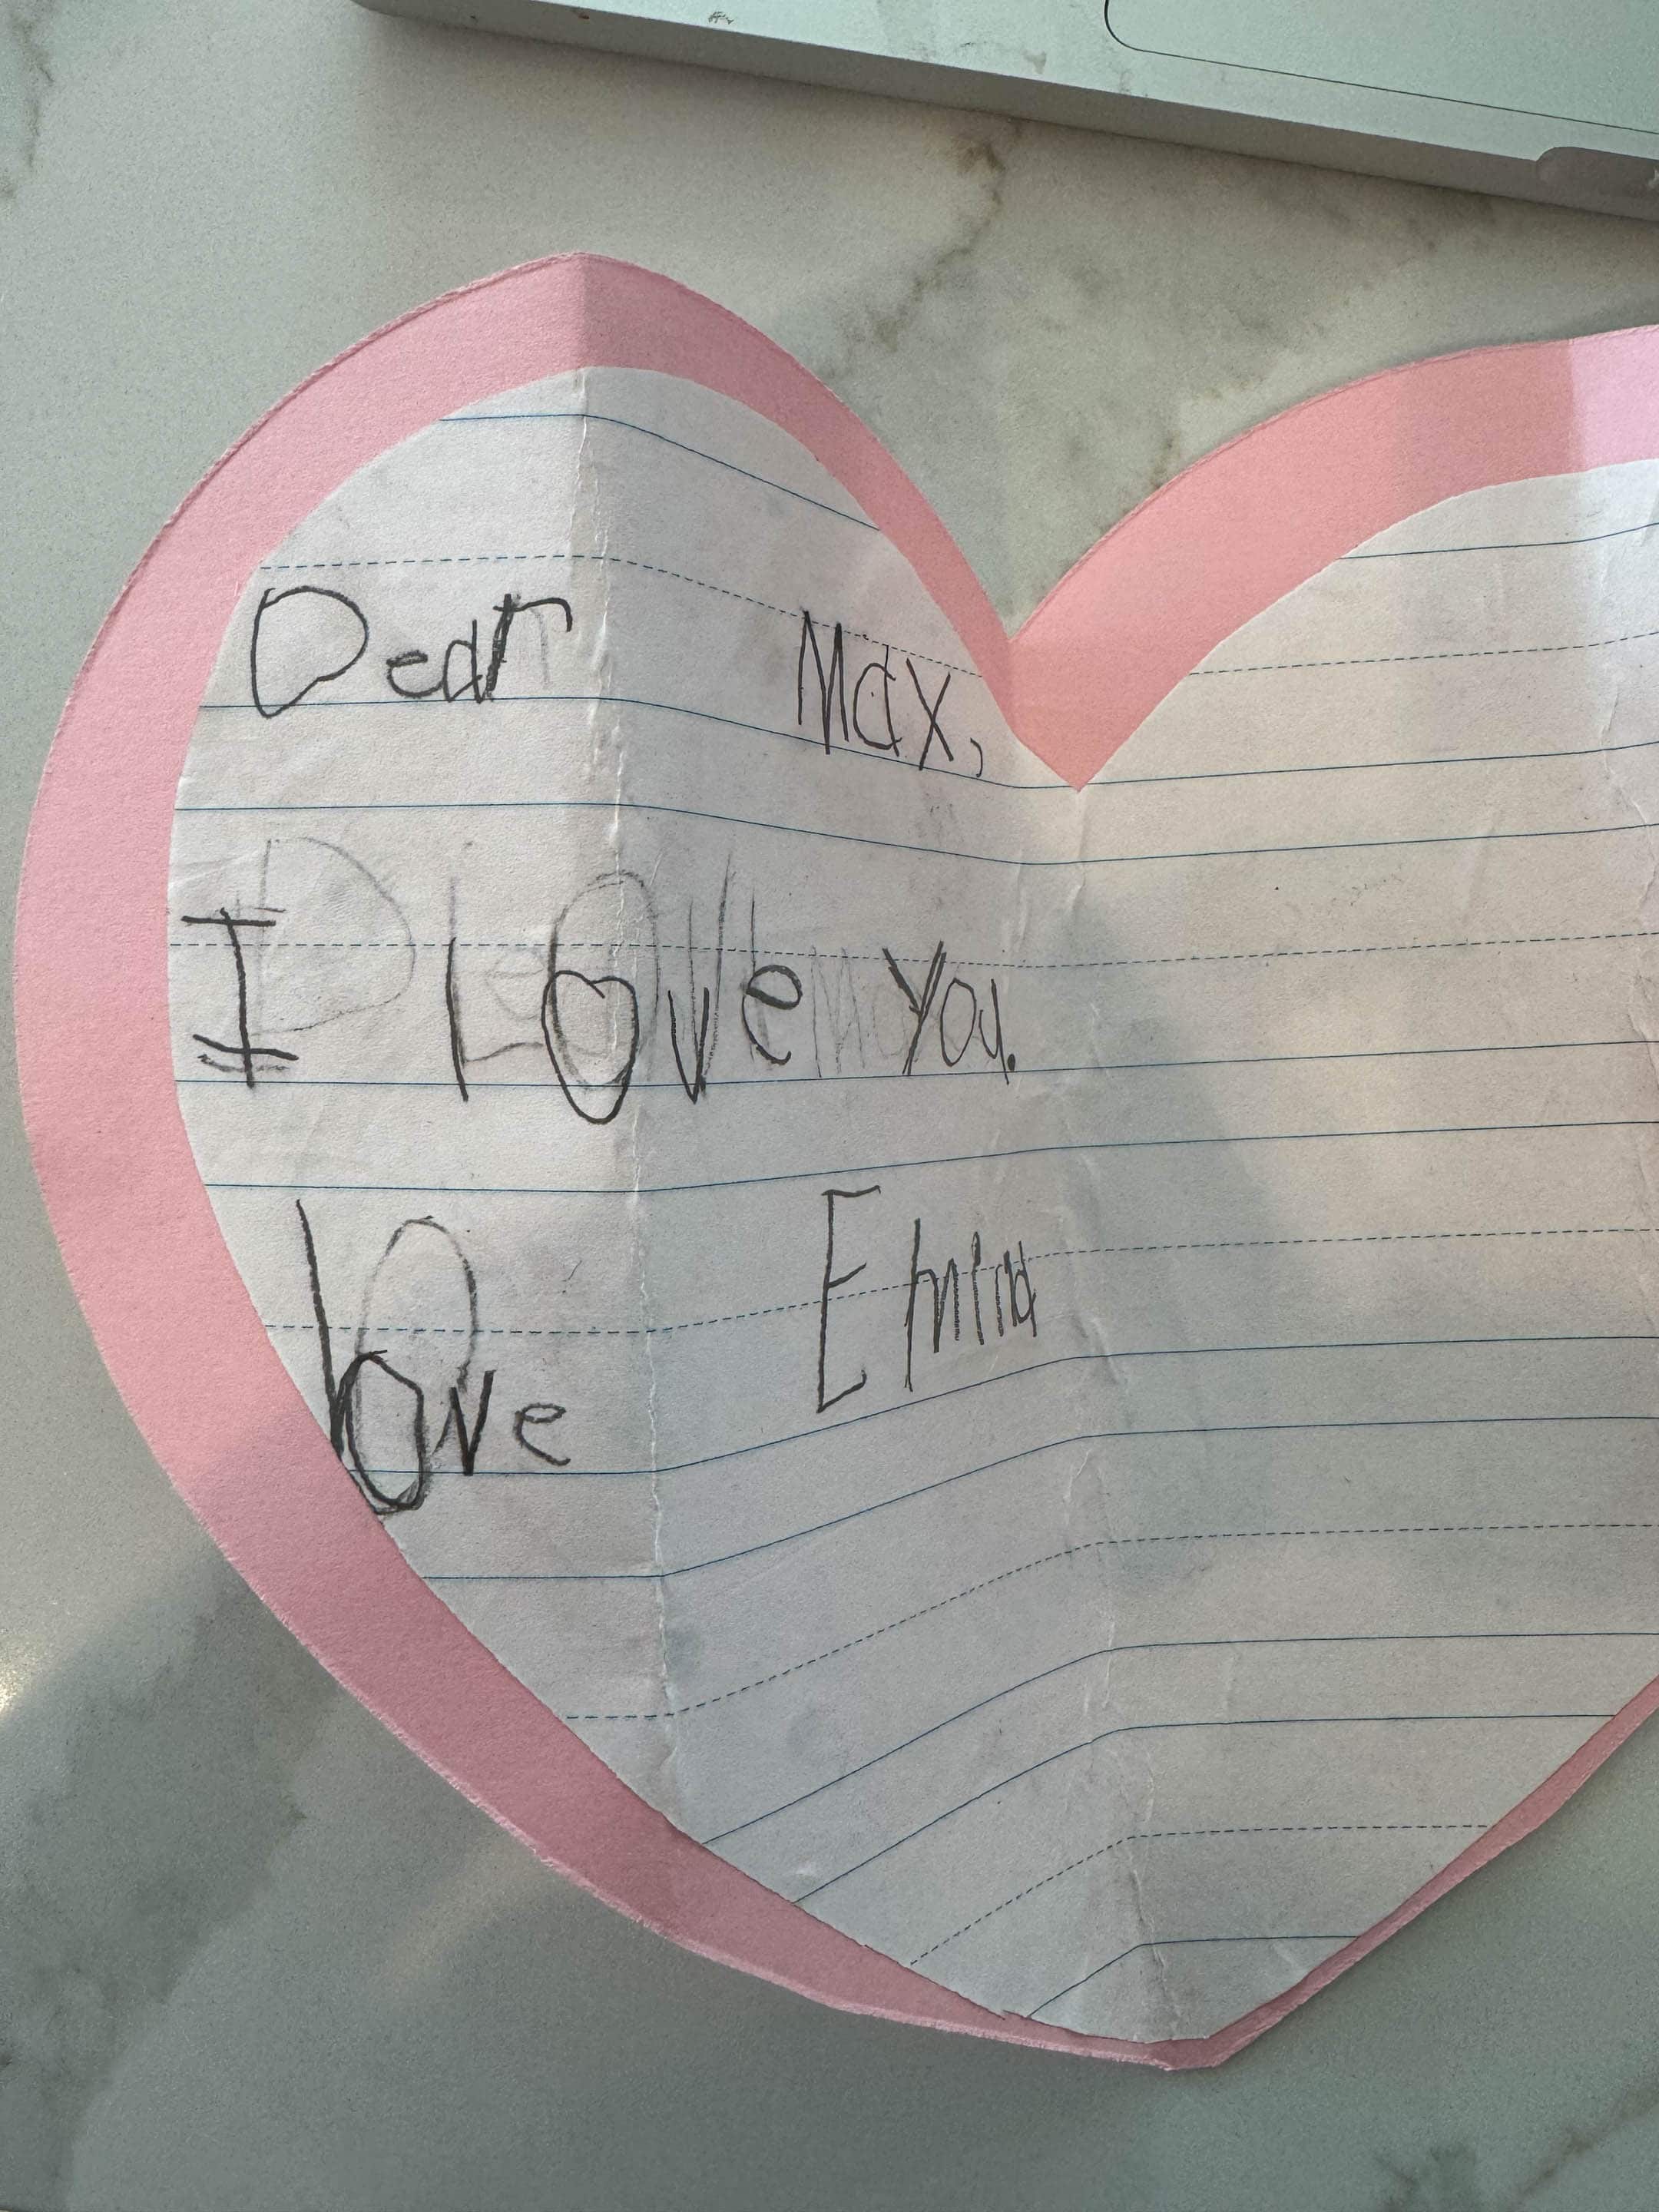 Dear Max,
I Love you.
Love Emma